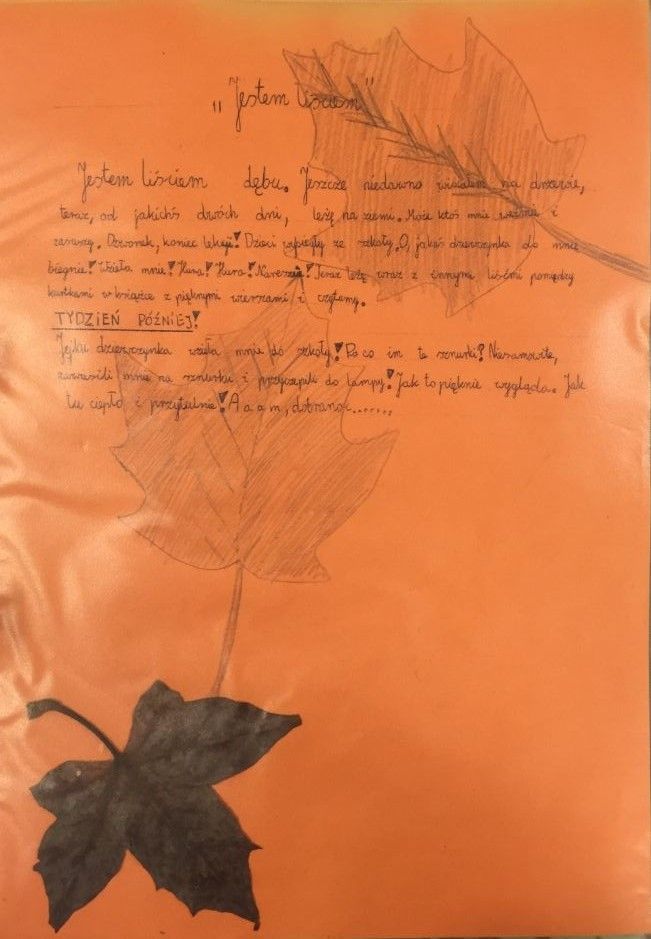 „Jestem liściem"
Jestem liściem dębu. Jeszcze niedawno wisiałem na drzewie,
teraz, od jakichś dwóch dni, leżę na ziemi. Może ktoś mnie weźmie i
zasuszy. Dzwonek, koniec lekcji! Dzieci wybiegły ze szkoły. O, jakaś dziewczynka do mnie
biegnie! Wzięła mnie! Hura! Hura! Nareszcie! Teraz leżę wraz z innymi liśćmi pomiędzy
kartkami w książce z pięknymi wierszami i czytamy.
TYDZIEŃ PÓŹNIEJ!
Jejku dziewczynka wzięła mnie do szkoły! Po co im te sznurki? Niesamowite,
zawiesili mnie na sznurku i przyczepili do lampy! Jak to pięknie wygląda. Jak
tu ciepło i przytulnie! A a a m, dobranoc.......